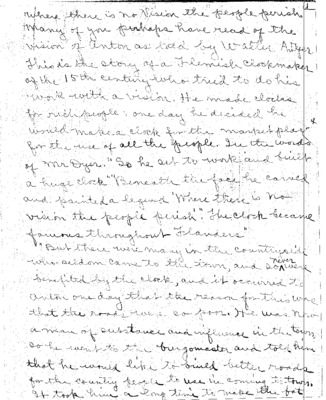 Where there is no Vision the people perish
Many of you perhaps have read of the
vision of Anton as told by Walter A. Dyer
This is the story of a Flemish clockmaker
of the 15th century who tried to do his
work with a vision. He made clocks
for rich people: one day he decided he
would make a clock for the market place
for the use of all the people. In the words
of Mr Dyer. "So he set to work and built
a huge clock" "Beneath the face he carved
and painted a legend 'Where there is no
vision the people perish'. The clock became
famous throughout Flanders"
"But there were many in the countryside
who seldom came to the town, and so never were
benefited by the clock, and it occurred to
Anton one day that the reason for this was
that the roads were so poor. He was now
a man of substance and influence in the town
so he went to the burgomaster and told him
that he would like to build better roads
for the country people to use in coming to town.
It took him a long time to make the fat